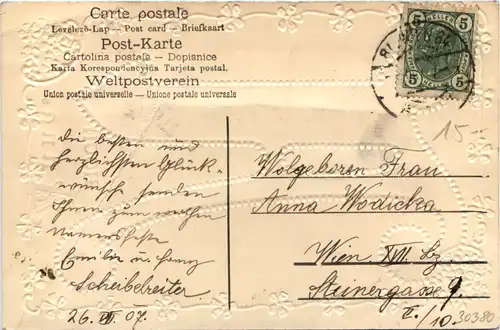 Carte postale
Levelező-Lap — Post card — Briefkaart
Post-Karte
Cartolina postale — Dopisnice
Karta Korespondencyjna Tarjeta postal.
Weltpostverein
Union postale universelle — Unione postale universale
5 HELLER 5
5 5
15-
die besten und
herzlichsten Glück-
wünsche senden
Ihnen zum werthen
Namensfeste
Emilie u. Franz
Scheibelreiter
26. VII 07.
Wolgeboren Frau
Anna Wodicka
Wien XVII. Bz.
Steinergasse 9.
I./10.
30380